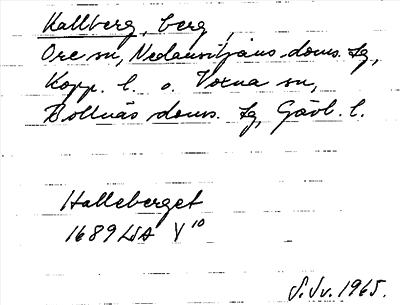 Kallberg, berg,
Ore sn, Nedansiljans doms. tg,
Kopp. l. o. Voxna sn,
Bollnäs doms. tg, Gävl. l.
Halleberget
1689 LSA V 10
S.Sv. 1965.